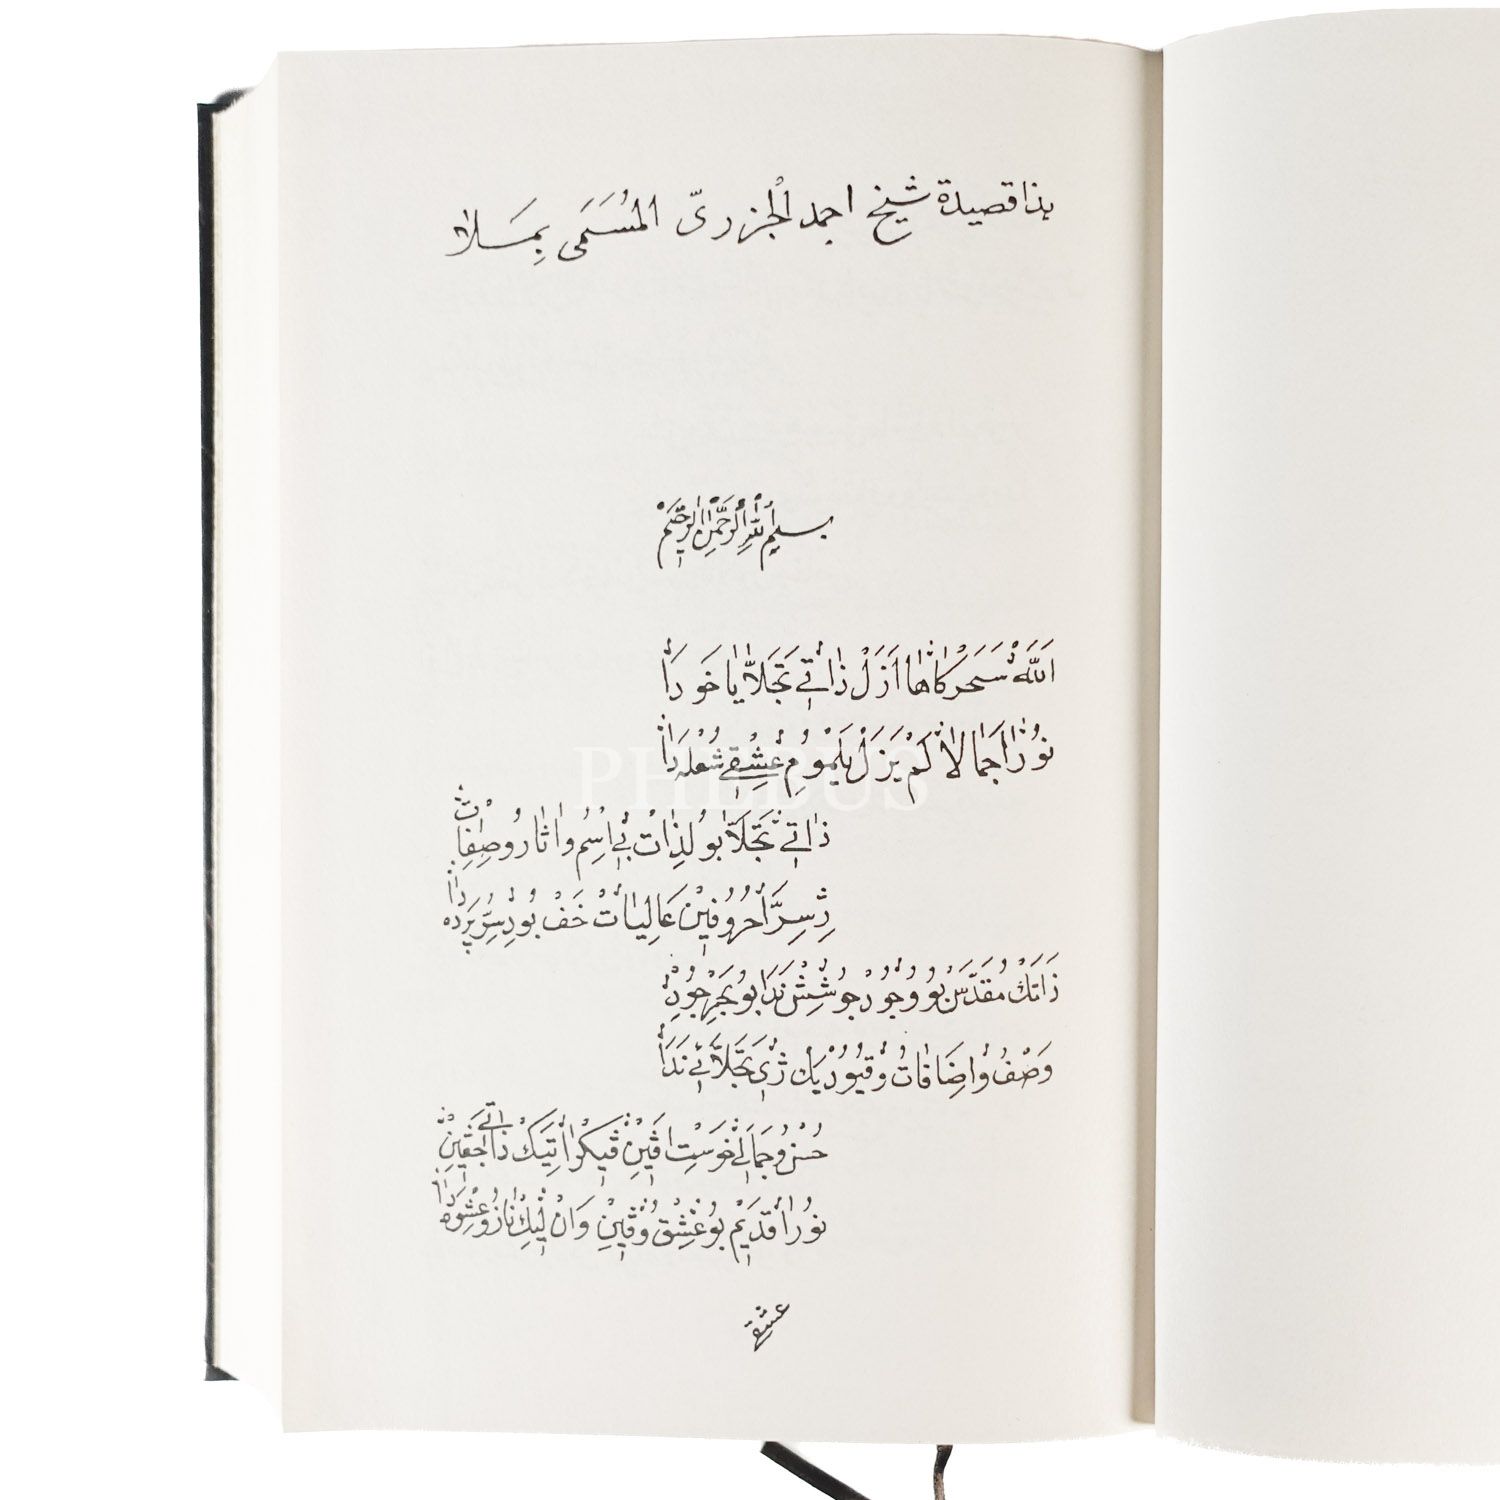 هذا قصيدة شيخ احمد الْجزرىّ المُسَمَى بِمَلا
بِسْمِ اللّٰهِ الرَّحْمٰنِ الرَّحٖيمْ
اَللَّهْ سَحَركَاهَا اَزَلْ ذَاتٖى تَجَلَّا يَا خَوَ دَا
نُورَا جَمَالَا لَمْ يَزَلْ يَلْمُومِ عِشْقٖى شُعْلَه دَا
ذَاتٖى تَجَلَّا بُو لِذَاتْ بٖى اِسْمُ وَاٰثَارُ وصِفَاتْ
رِسِرَّا حُرُوفٖينْ عَالِيَاتْ خَفْ بُو دِسِرُّ پَرْدَه دَا
ذَاتَكْ مُقَدَّسْ بُو وُجُودْ جُوشِشْ نَدَا بُو بَحْرِ جُودْ
وَصْفُ واِضَافَاتُ وقُيُودْ يَكْ ژٖى تَجَلَّائٖى نَدَا
حُسْنُ وجَمَالٖى خُوَسْتِ اڤٖينْ ڤٖيكْرَا تِيَكْ ذَاتٖى
نُورَا قَدٖيمْ بُو عِشْقُ وڤٖينْ وَانْ لٖيكْ نَازُ وعِشْوَه دَا
عشقٖى
PHEBUS